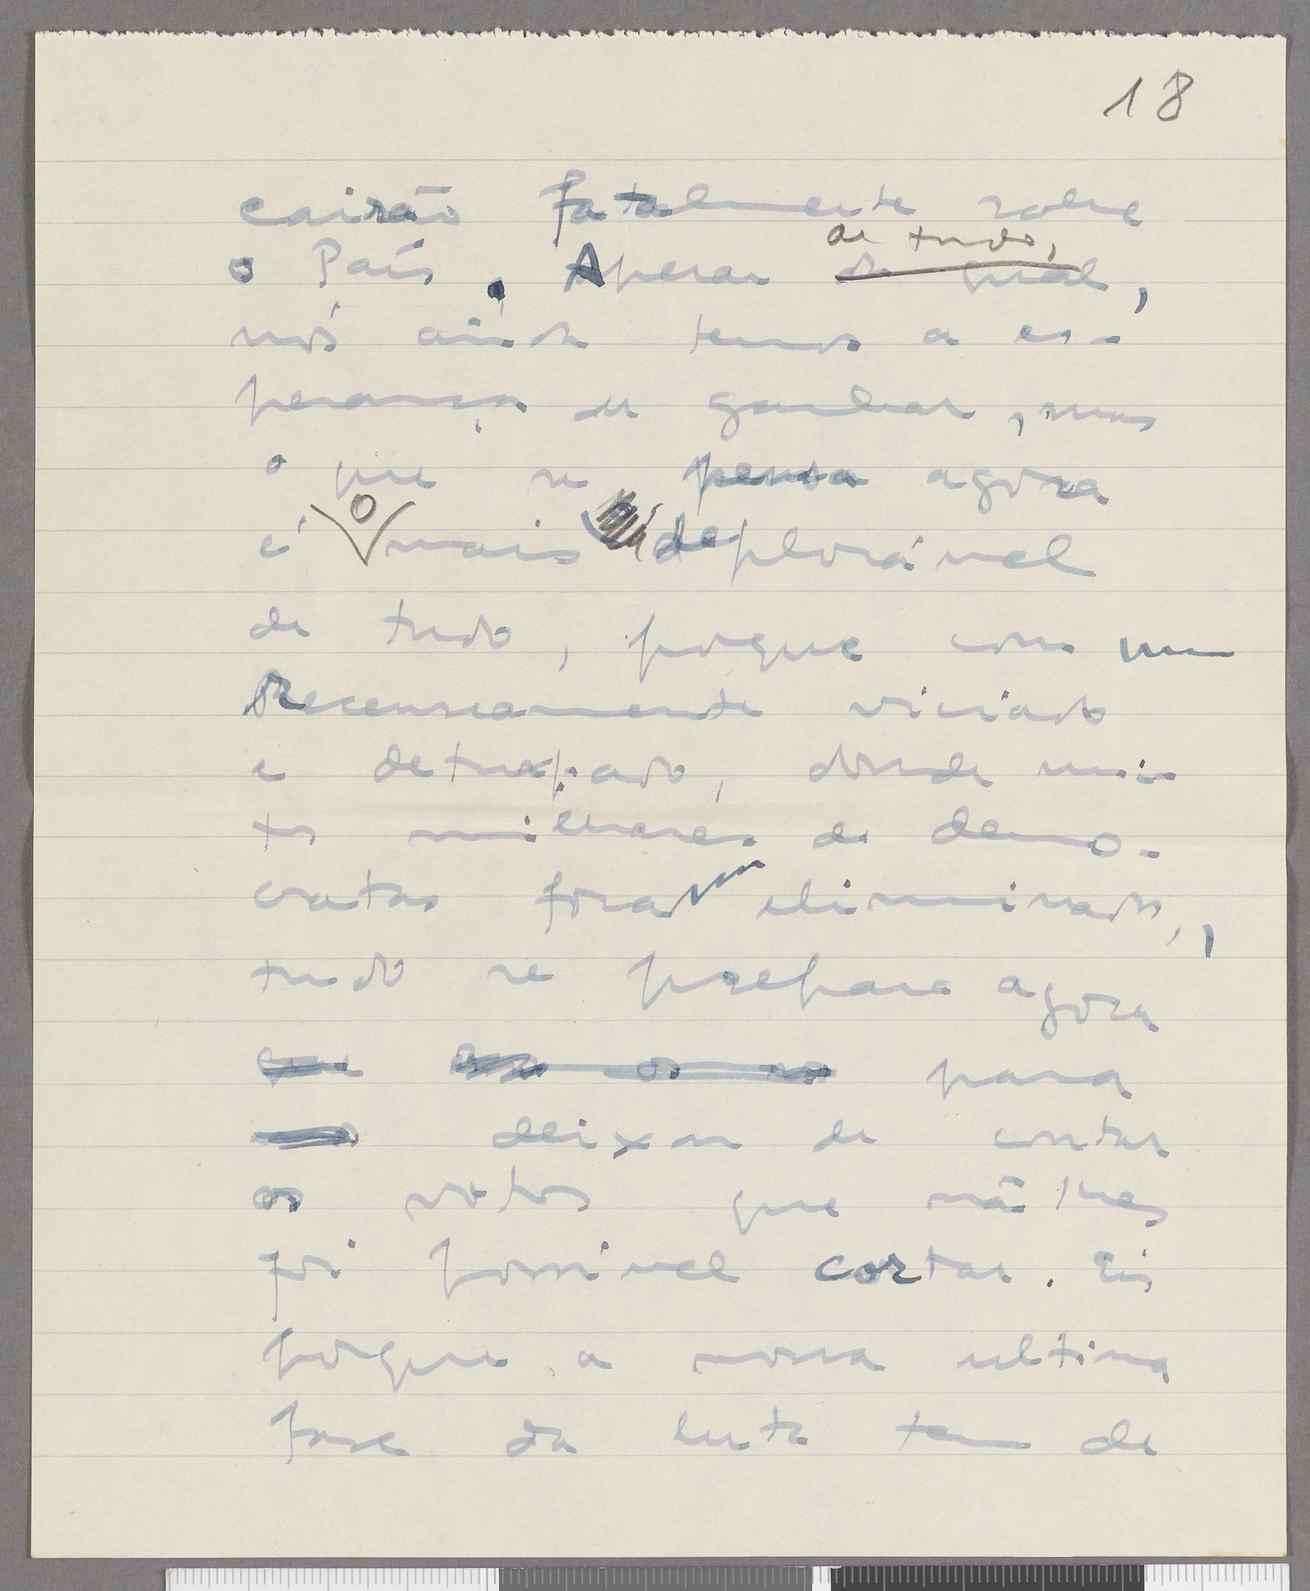 18
cairão fatalmente sobre
de tudo,
o País. Apesar do qual,
nós ainda temos a es-
perança de ganhar, mas
o que se pensa agora
é o mais deplorável
de tudo, porque com um
Recenseamento viciado
e deturpado, donde mui
tos milhares de demo-
cratas foram eliminados,
tudo se prepara agora
para
deixar de contar
os votos que não lhes
foi possivel cortar. Eis
porque a nossa ultima
fase da luta tem de